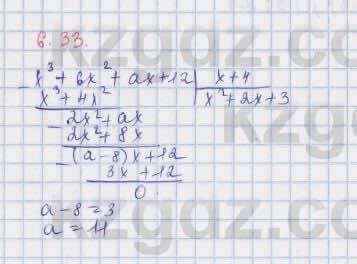 6.33.
- x³ + 6x² + ax + 12 | x + 4
x³ + 4x² | x² + 2x + 3
- 2x² + ax
2x² + 8x
- (a - 8)x + 12
3x + 12
0
a - 8 = 3
a = 11
kzgdz.com